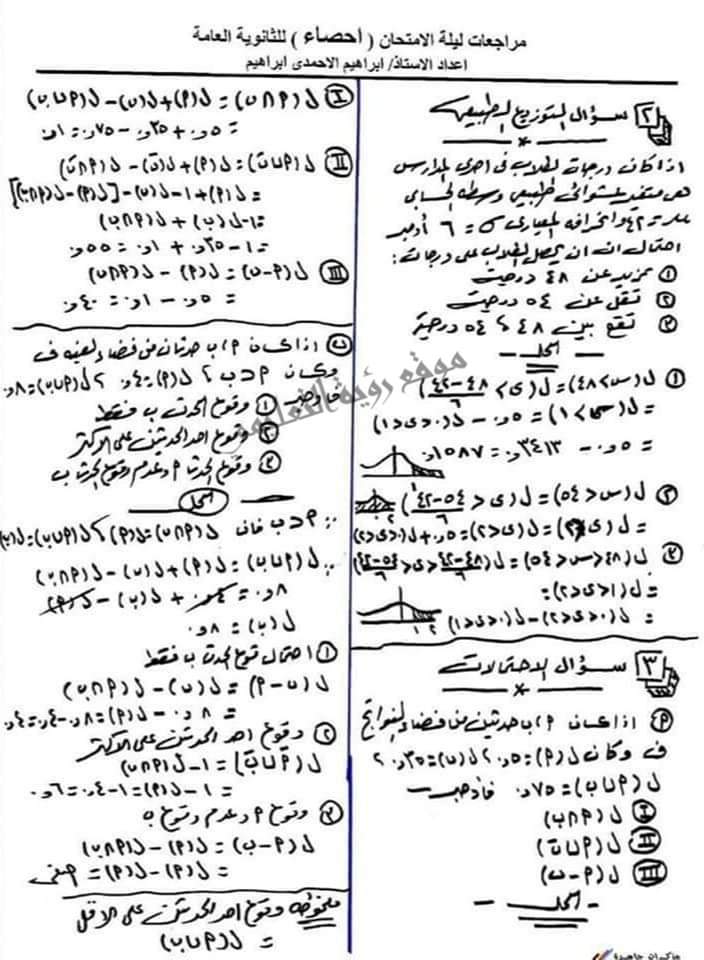 مراجعات ليلة الامتحان ( أحصاء ) للثانوية العامة
اعداد الاستاذ/ ابراهيم الاحمدى ابراهيم
٢ سؤال التوزيع الطبيعى
اذا كان درجات الطلاب فى احدى المدارس
هى متغير عشوائى طبيعى وسطه الحسابى
= ٤٢ وانحرافه المعيارى σ = ٦ أوجد
احتمال ان يحصل الطلاب على درجات :
١ تزيد عن ٤٨ درجة
٢ تقل عن ٥٤ درجة
٣ تقع بين ٤٨ ، ٥٤ درجة
الحل
١ ل(س>٤٨) = ل(ى > (٤٨-٤٢)/٦)
= ل(ى > ١) = ٠٫٥ - ل(٠<ى<١)
= ٠٫٥ - ٠٫٣٤١٣ = ٠٫١٥٨٧
٢ ل(س<٥٤) = ل(ى < (٥٤-٤٢)/٦)
= ل(ى<٢) = ٠٫٥ + ل(٠<ى<٢)
٣ ل(٤٨<س<٥٤) = ل((٤٨-٤٢)/٦ < ى < (٥٤-٤٢)/٦)
= ل(١<ى<٢)
= ل(٠<ى<٢) - ل(٠<ى<١)
١ ٢
٣ سؤال الاحتمالات
P اذا كان P ، ب حدثين من فضاء النواتج
ف وكان ل(P) = ٠٫٥ ، ل(ب) = ٠٫٣٥ ،
ل(P∪ب) = ٠٫٧٥ فأوجد
I ل(P∩ب)
II ل(P∪ب َ)
III ل(P-ب)
- الحل -
I ل(P∩ب) = ل(P) + ل(ب) - ل(P∪ب)
= ٠٫٥ + ٠٫٣٥ - ٠٫٧٥ = ٠٫١
II ل(P∪ب َ) = ل(P) + ل(ب َ) - ل(P∩ب َ)
= ل(P) + ١ - ل(ب) - [ل(P) - ل(P∩ب)]
= ١ - ل(ب) + ل(P∩ب)
= ١ - ٠٫٣٥ + ٠٫١ = ٠٫٥٥
III ل(P-ب) = ل(P) - ل(P∩ب)
= ٠٫٥ - ٠٫١ = ٠٫٤٠
ب اذا كان P ، ب حدثان من فضاء العينه ف
وكان P ⊂ ب ، ل(P) = ٠٫٤ ، ل(P∪ب) = ٠٫٨
فأوجد ١ وقوع الحدث ب فقط
٢ وقوع احد الحدثين على الاكثر
٣ وقوع الحدث P وعدم وقوع الحدث ب
الحل
∵ P ⊂ ب فان ل(P∩ب) = ل(P) ، ل(P∪ب) = ل(ب)
∴ ل(P∪ب) = ل(P) + ل(ب) - ل(P∩ب)
٠٫٨ = ٠٫٤ + ل(ب) - ل(P)
ل(ب) = ٠٫٨
١ احتمال وقوع الحدث ب فقط
ل(ب-P) = ل(ب) - ل(P∩ب)
= ٠٫٨ - ل(P) = ٠٫٨ - ٠٫٤ = ٠٫٤
٢ وقوع احد الحدثين على الاكثر
ل(P∩ب)َ = ١ - ل(P∩ب)
= ١ - ل(P) = ١ - ٠٫٤ = ٠٫٦
٣ وقوع P وعدم وقوع ب
ل(P-ب) = ل(P) - ل(P∩ب)
= ل(P) - ل(P) = صفر
ملحوظه وقوع احد الحدثين على الاقل
= ل(P∪ب)
موقع رؤية التعليمى